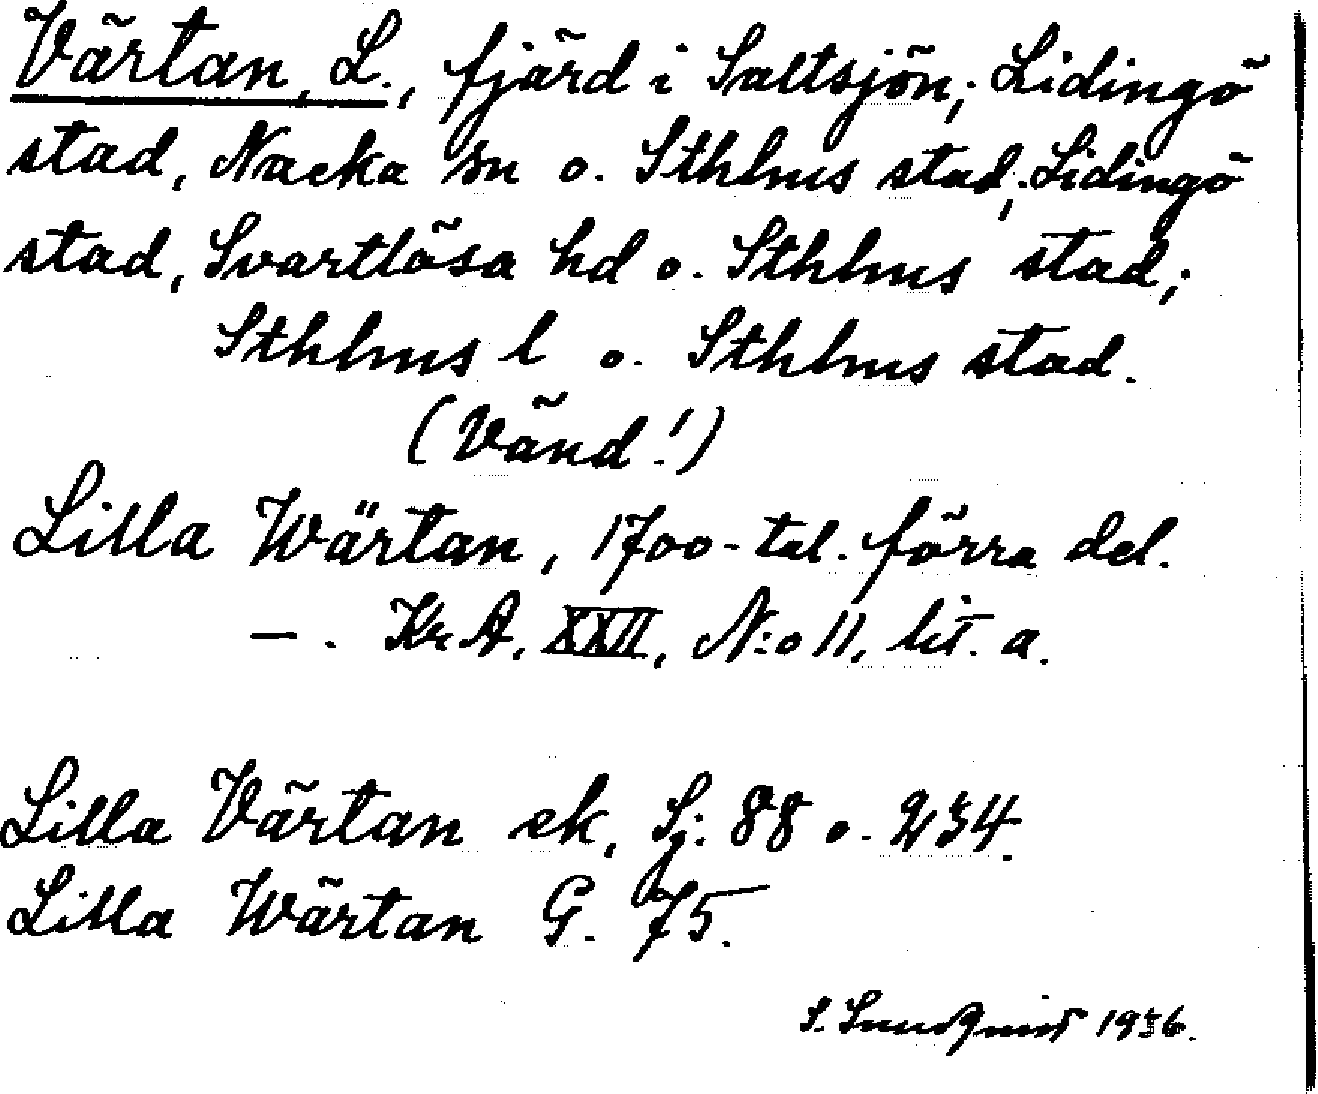 Värtan, L., fjärd i Saltsjön; Lidingö
stad, Nacka sn o. Sthlms stad; Lidingö
stad, Svartlösa hd o. Sthlms stad;
Sthlms l o. Sthlms stad.
(Vänd!)
Lilla Wärtan, 1700-tal. förra del.
— . KrA, XXII, N:o 11, lit. a.
Lilla Värtan ek, Sj: 88 o. 234.
Lilla Wärtan G. 75.
S. 1936.